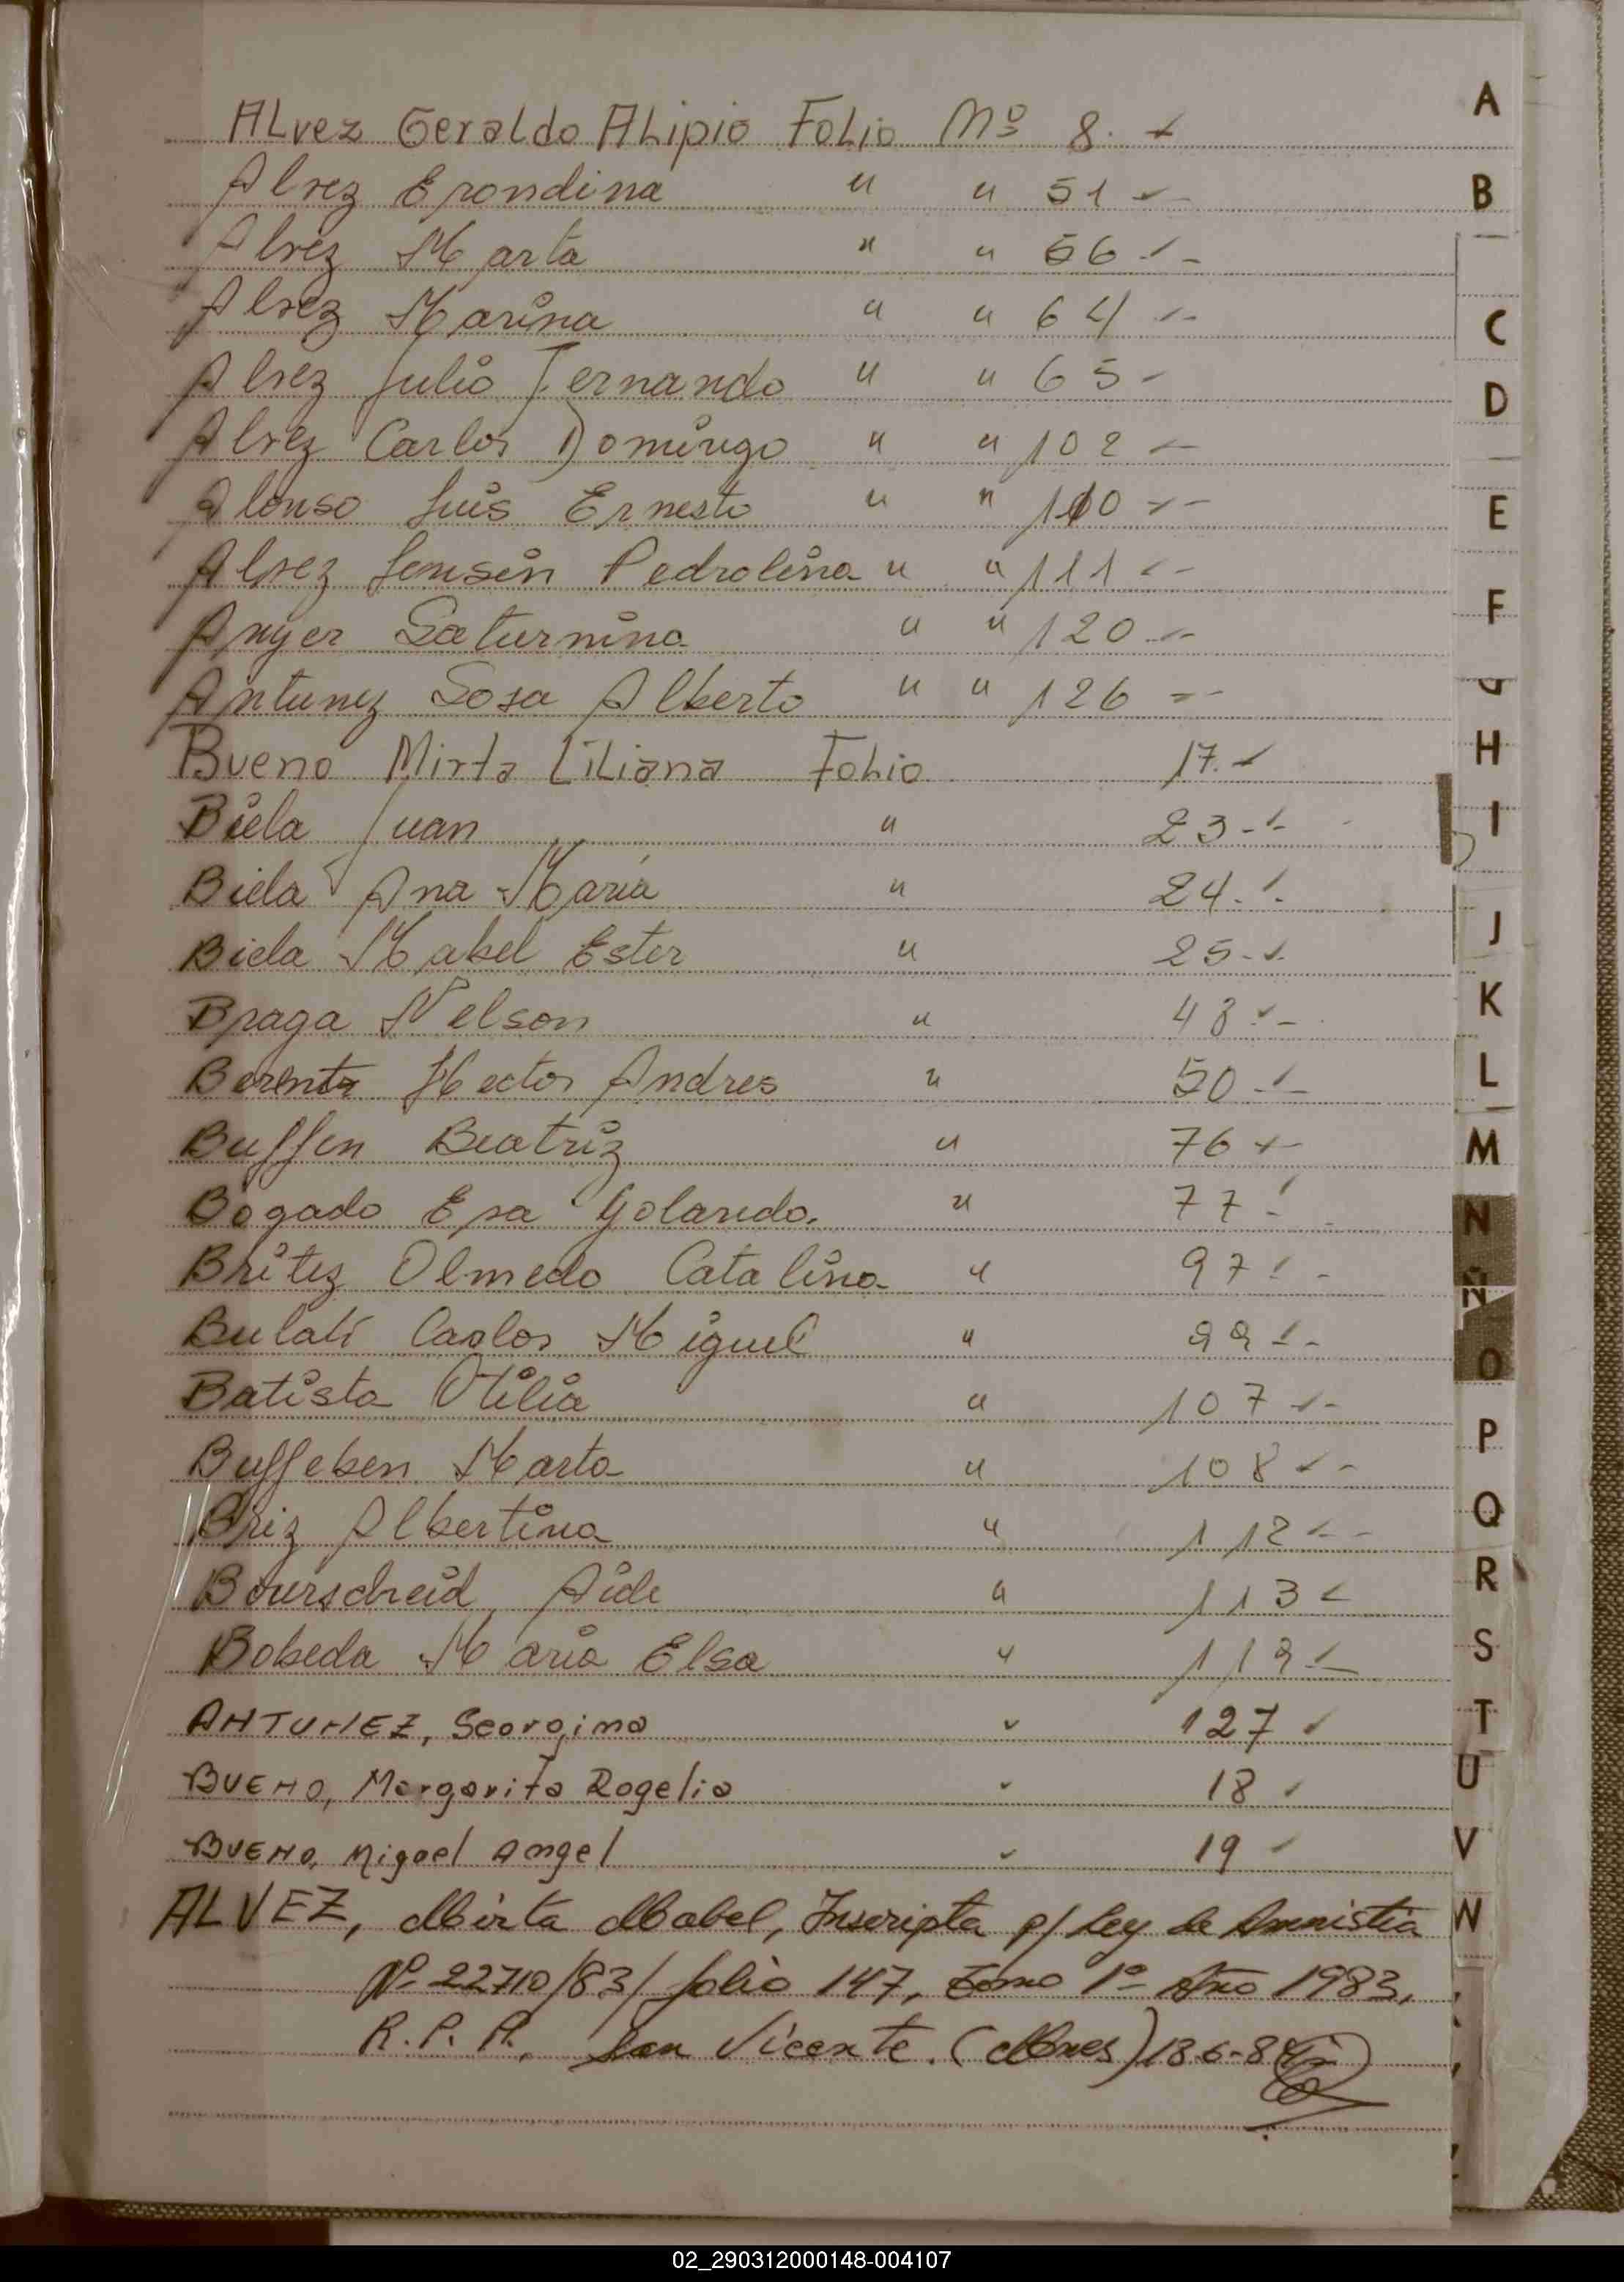 Alvez Geraldo Alipio Folio Nº 8.
Alvez Erondina " " 51
Alvez Marta " " 56
Alvez Marina " " 64
Alvez Julio Fernando " " 65
Alvez Carlos Domingo " " 102
Alonso Luis Ernesto " " 110
Alvez Pedrolina " " 111
Anger Saturnino " " 120
Antunez Sosa Alberto " " 126
Bueno Mirta Liliana Folio 17.
Biela Juan " 23
Biela Ana Maria " 24
Biela Mabel Ester " 25
Braga Nelson " 48
Berentz Hector Andres " 50
Buffen Beatriz " 76
Bogado Golando. " 77
Britez Olmedo Catalina " 97
Bulali Carlos Miguel " 99
Batista Otilia " 107
Buffeben Marta " 108
Briz Albertina " 112
Bourscheid Aide " 113
Bobeda Maria Elsa " 119
ANTUNEZ, Georgina " 127
BUENO, Margarita Rogelia " 18
BUENO, Miguel Angel " 19
ALVEZ, Mirta Mabel, Inscripta p/ Ley de Amnistia
Nº 22710/83/ folio 147, Tomo 1º Año 1983,
R.P.P. San Vicente. (Mnes)
A
B
C
D
E
F
G
H
I
J
K
L
M
N
Ñ
O
P
Q
R
S
T
U
V
W
02_290312000148-004107